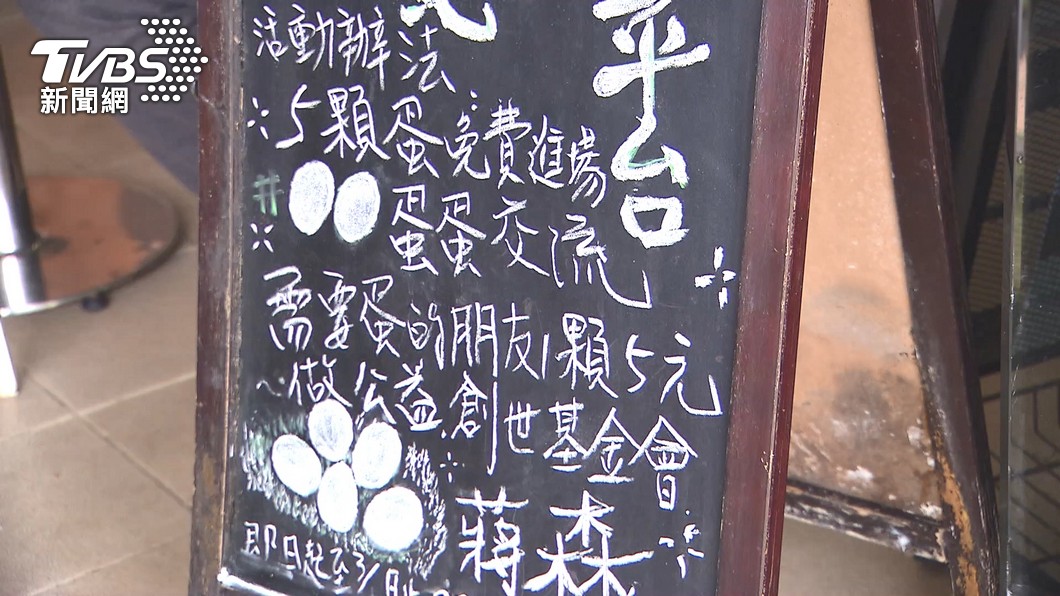 TVBS
新聞網
平台
活動辦法
5顆蛋免費進場
#
蛋蛋交流
需要蛋的朋友1顆5元
~做公益
創世基金會
蔣森
即日起至3/